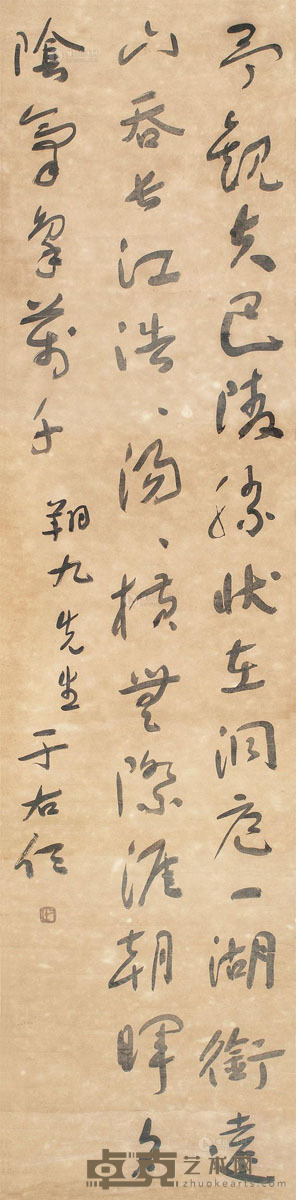 予觀夫巴陵勝狀在洞庭一湖銜遠
山吞長江浩、湯、橫無際涯朝暉夕
陰氣象萬千
翔九先生 于右任
卓克艺术网
www.zhuokearts.com